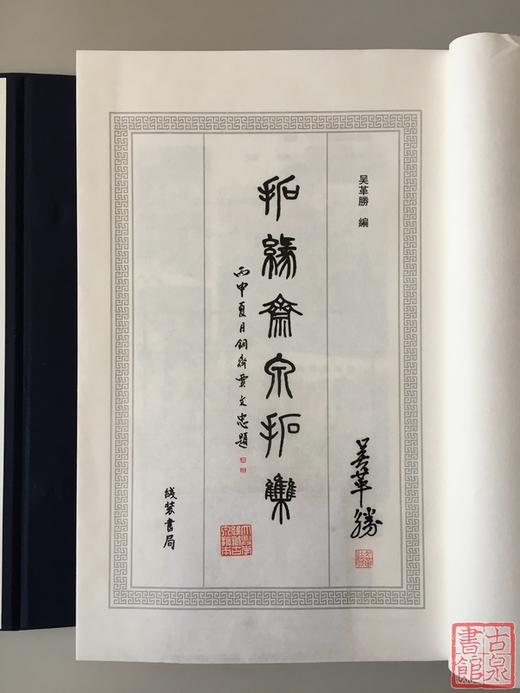 吴革勝 編
拓緣齋泉拓集
丙申夏月銅齋賈文忠題
綫裝書局
吴革勝
古泉
書館